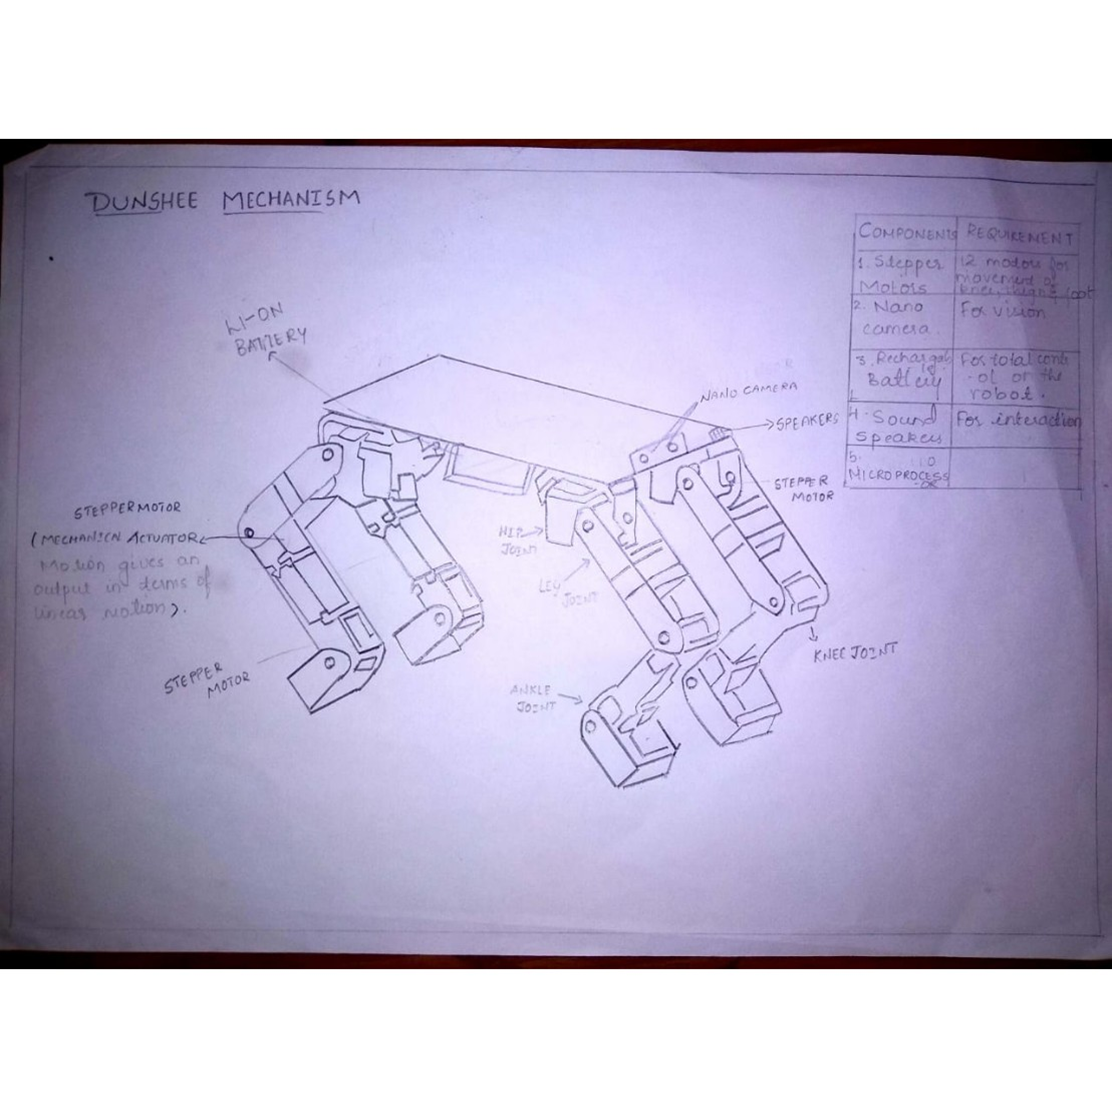 DUNSHEE MECHANISM
COMPONENTS REQUIREMENT
1. Stepper Motors
12 motors for
movement of
knee, foot
2. Nano
camera.
For vision
3. Rechargab
Battery
For total contr
-ol of the
robot.
4. Sound
Speakers
For interaction
5.
MICROPROCESS
OR
LI-ON
BATTERY
NANO CAMERA
SPEAKERS
STEPPER
MOTOR
STEPPER MOTOR
(MECHANICN ACTUATOR
Motion gives an
output in terms of
linear motion).
HIP
JOINT
LEG
JOINT
KNEE JOINT
STEPPER
MOTOR
ANKLE
JOINT